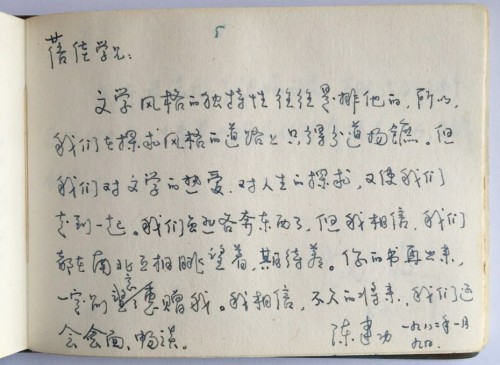 5
蓓佳学兄:
文学风格的独特性往往是排他的,所以,
我们在探求风格的道路上只得分道扬镳。但
我们对文学的热爱,对人生的探求,又使我们
走到一起。我们虽然各奔东西了,但我相信,我们
都在南北互相眺望着,期待着。你的书再出来,
一定别忘惠赠我。我相信,不久的将来,我们还
会会面、畅谈。 陈建功 一九八二年一月
九日.